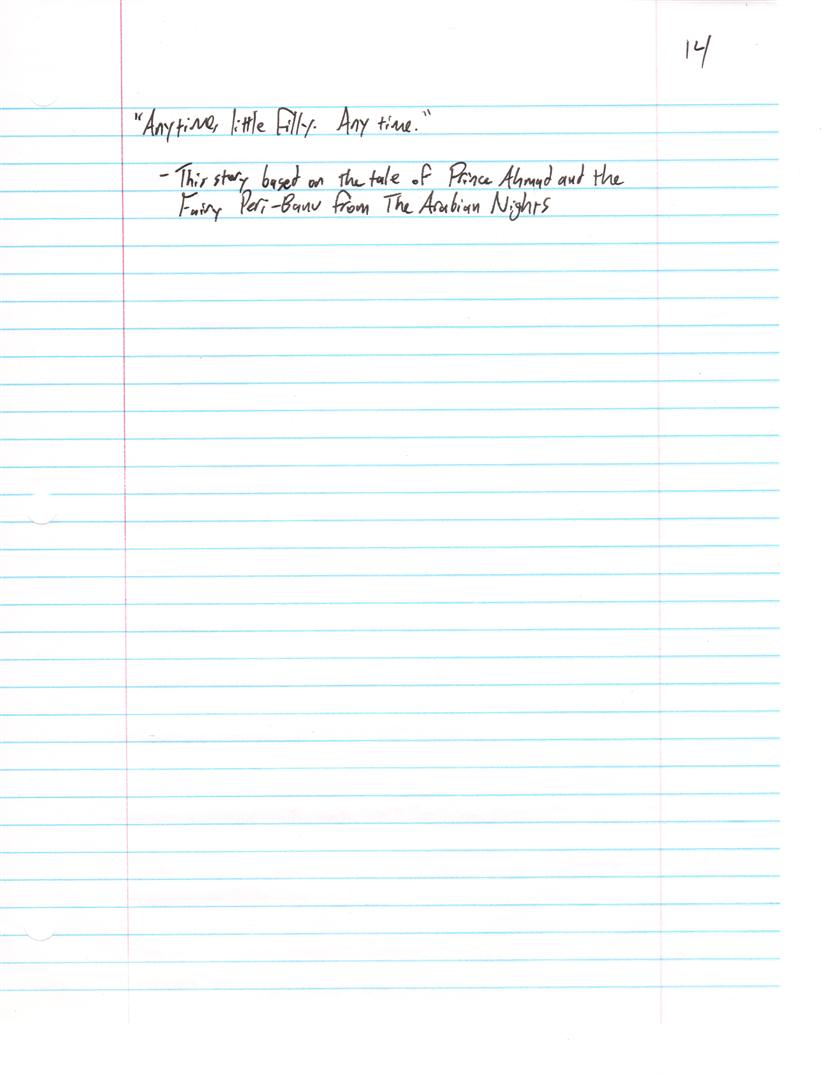 14
"Anytime, little filly. Any time."
- This story based on the tale of Prince Ahmad and the
Fairy Peri-Banu from The Arabian Nights